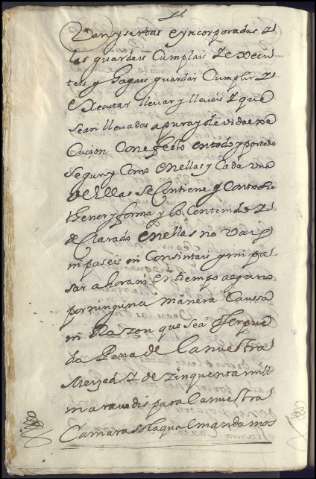 Van ynsertas e yncorporadas E
las guardeis cumplais Executeis
teis y hagais guardar Cumplir E
Executar llevar y lleveis E que
sean llevadas a pura y devida exe
cucion Con efecto en todo y por todo
segun y Como en ellas y Cada una
de ellas se Contiene y contra el
thenor y forma y lo Contenido E
de Clarado en ellas no vais ni
paseis ni Consintais yr ni pa
sar ahora ni en tiempo alguno
por ninguna manera Caussa
ni Razon que sea so pena
la Pena de la nuestra
Merzed E de zinquenta mill
maravedis para la nuestra
Camara so la qual mandamos